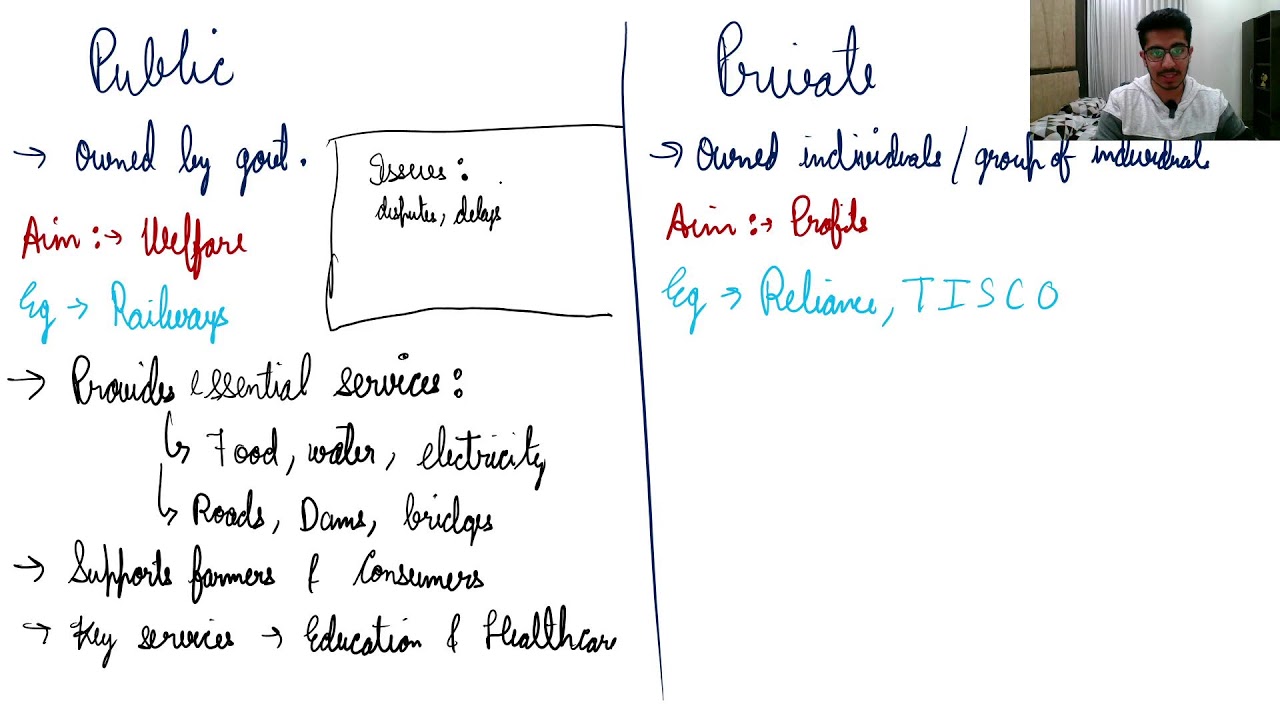 Public
→ Owned by govt.
Aim :→ Welfare
Eg → Railways
Issues :
disputes, delays
→ Provides essential services:
↳ Food, water, electricity
↳ Roads, Dams, bridges
→ Supports farmers & Consumers
→ Key services → Education & Healthcare
Private
→ Owned individuals / group of individuals
Aim :→ Profits
Eg → Reliance, TISCO